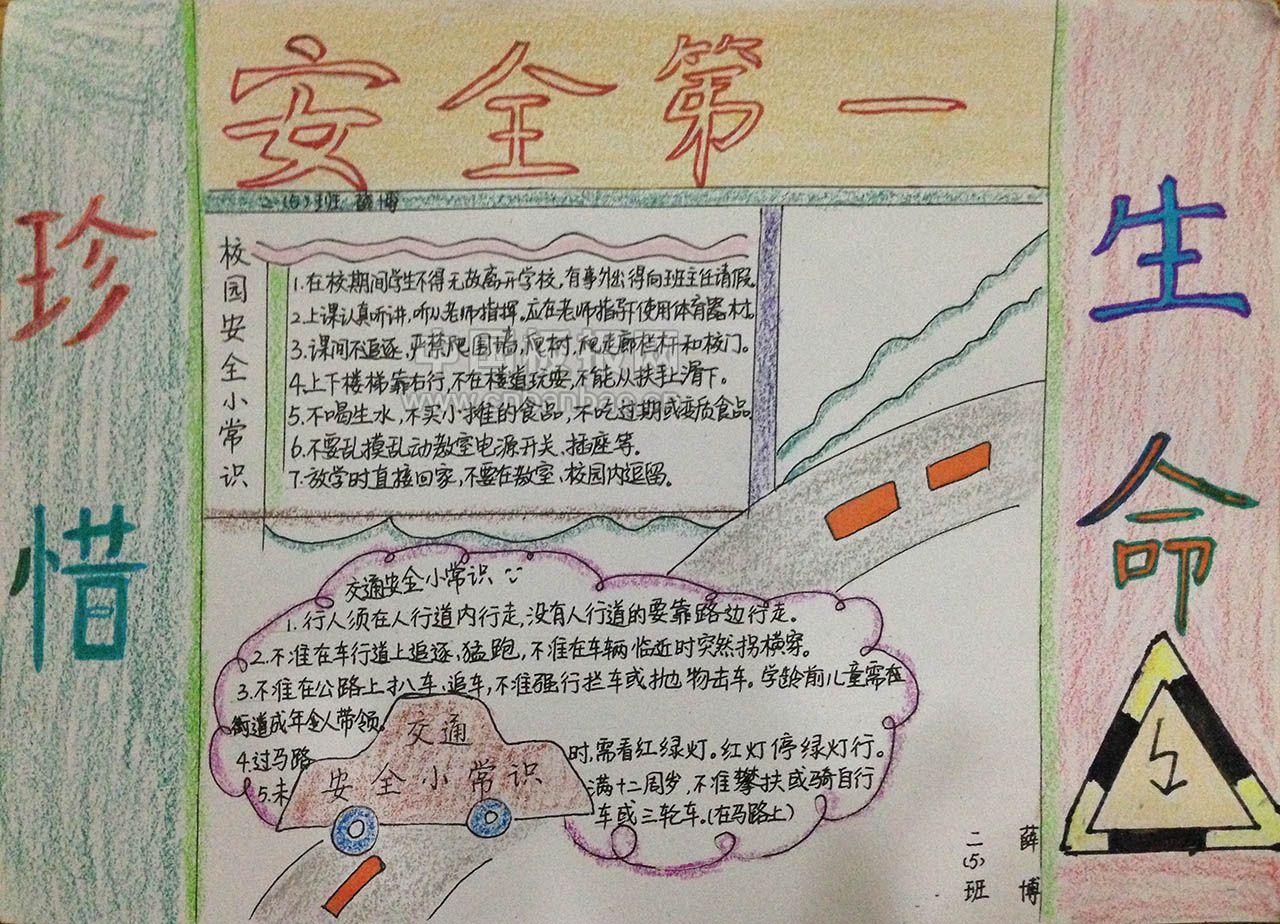 安全第一
珍惜
生命
二(5)班 薛博
校园安全小常识
1.在校期间学生不得无故离开学校,有事外出得向班主任请假。
2.上课认真听讲,听从老师指挥。应在老师指导下使用体育器材。
3.课间不追逐,严禁爬围墙,爬树,爬走廊栏杆和校门。
4.上下楼梯靠右行,不在楼道玩耍,不能从扶手上滑下。
5.不喝生水,不买小摊的食品,不吃过期或变质食品
6.不要乱摸乱动教室电源开关、插座等。
7.放学时直接回家,不要在教室、校园内逗留。
中国板报网
www.cnbanbao.cn
交通安全小常识
1.行人须在人行道内行走,没有人行道的要靠路边行走。
2.不准在车行道上追逐、猛跑,不准在车辆临近时突然拐横穿。
3.不准在公路上扒车、追车,不准强行拦车或抛物击车。学龄前儿童需在
街道成年人带领。
4.过马路时,需看红绿灯。红灯停绿灯行。
5.未满十二周岁,不准攀扶或骑自行
车或三轮车。(在马路上)
交通
安全小常识
薛博
二(5)班